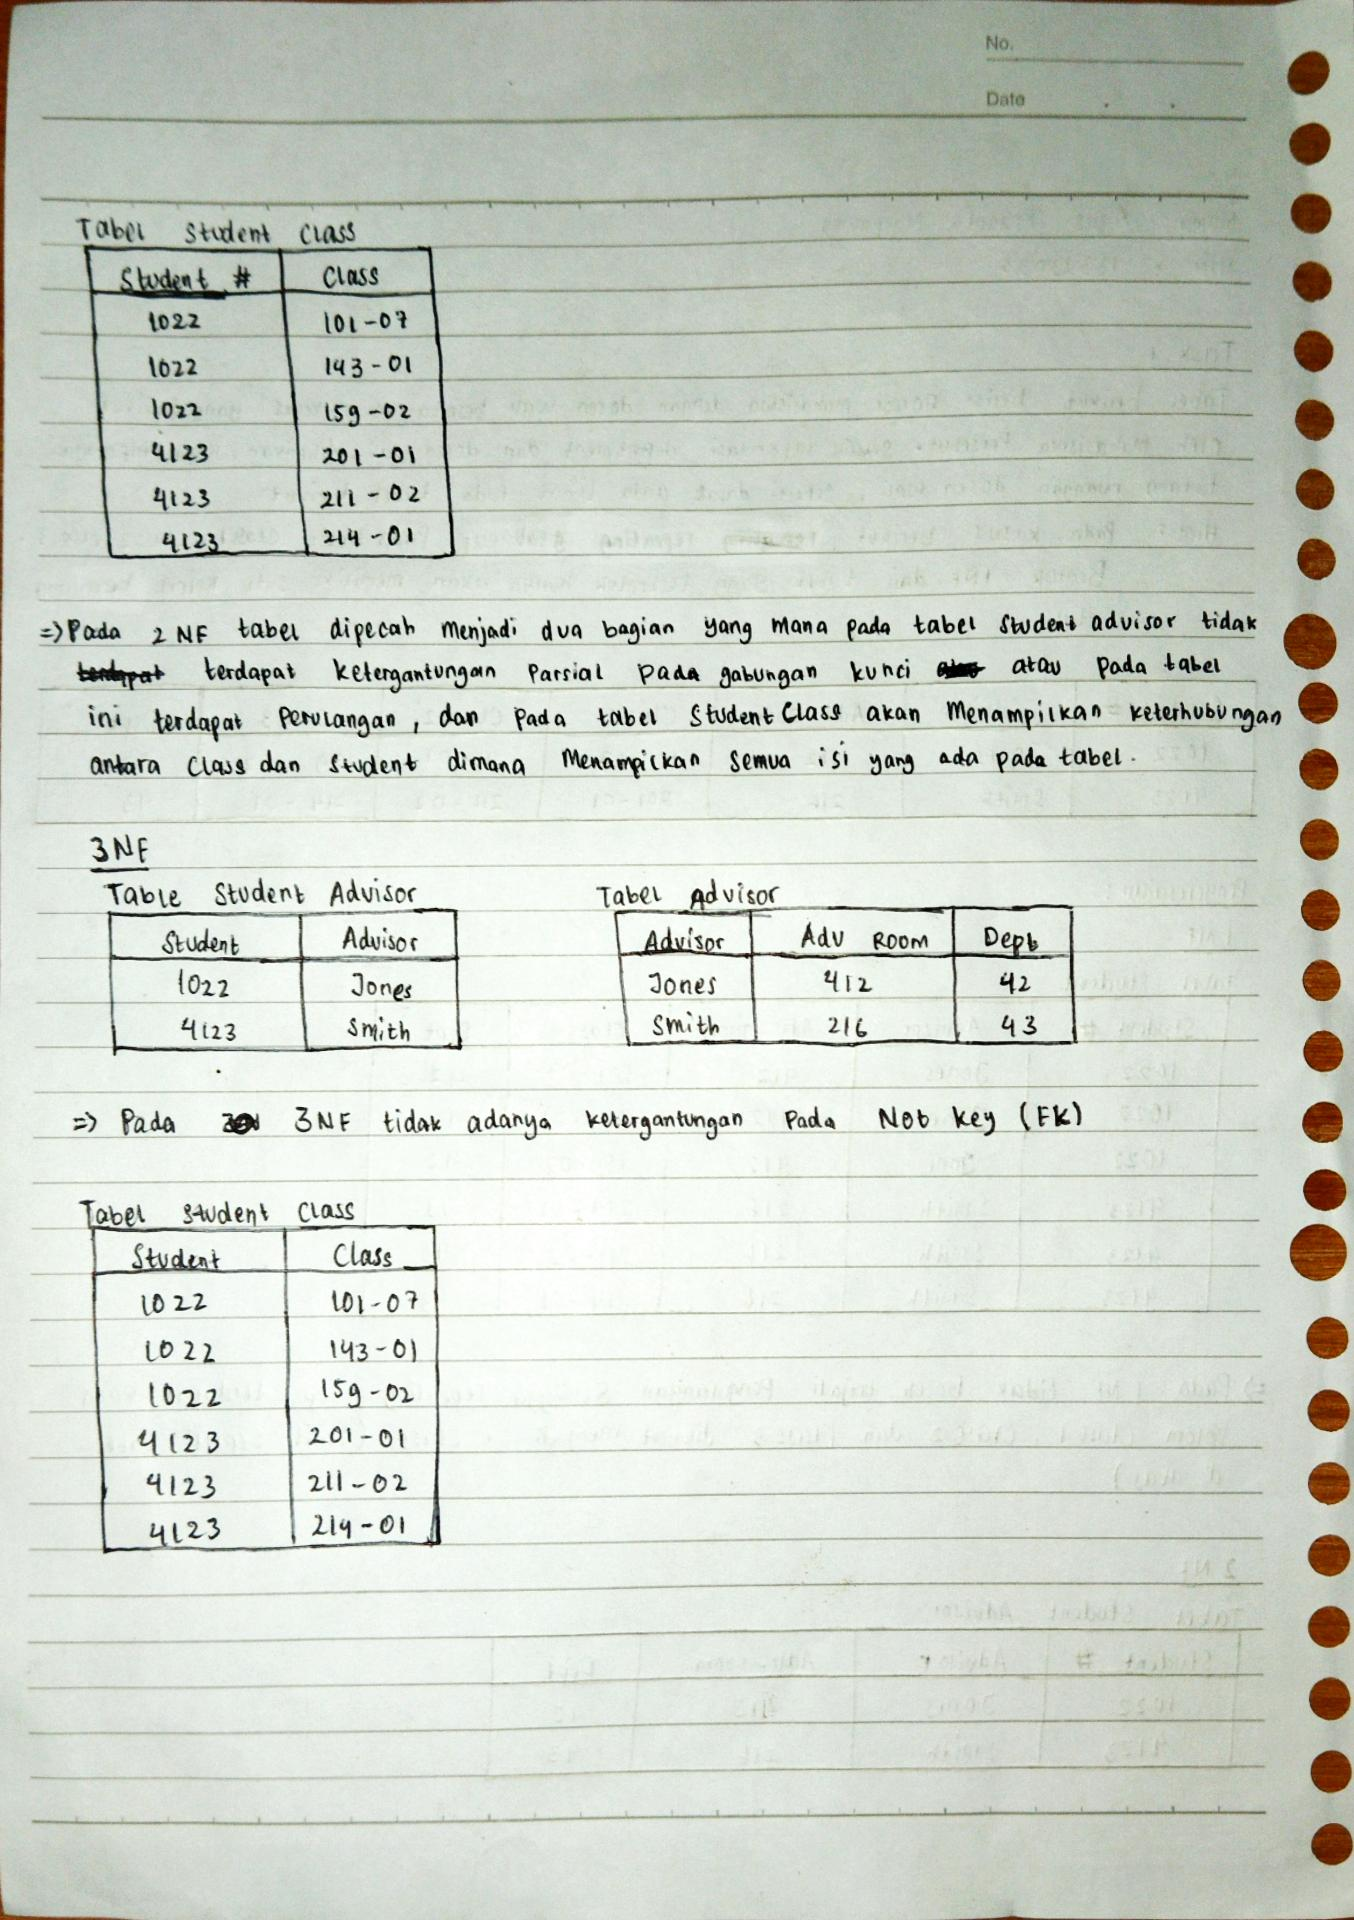 No.
Date
Tabel Student Class
Student # Class
1022 101-07
1022 143-01
1022 159-02
4123 201-01
4123 211-02
4123 214-01
=> Pada 2 NF tabel dipecah menjadi dua bagian yang mana pada tabel Student advisor tidak
terdapat terdapat ketergantungan Parsial Pada gabungan kunci atau Pada tabel
ini terdapat Perulangan, dan Pada tabel Student Class akan Menampilkan keterhubungan
antara Class dan Student dimana Menampilkan Semua isi yang ada pada tabel.
3NF
Table Student Advisor Tabel Advisor
Student Advisor Advisor Adv Room Dept
1022 Jones Jones 412 42
4123 Smith Smith 216 43
=> Pada 3NF tidak adanya ketergantungan Pada Not key (FK)
Tabel Student Class
Student Class
1022 101-07
1022 143-01
1022 159-02
4123 201-01
4123 211-02
4123 214-01